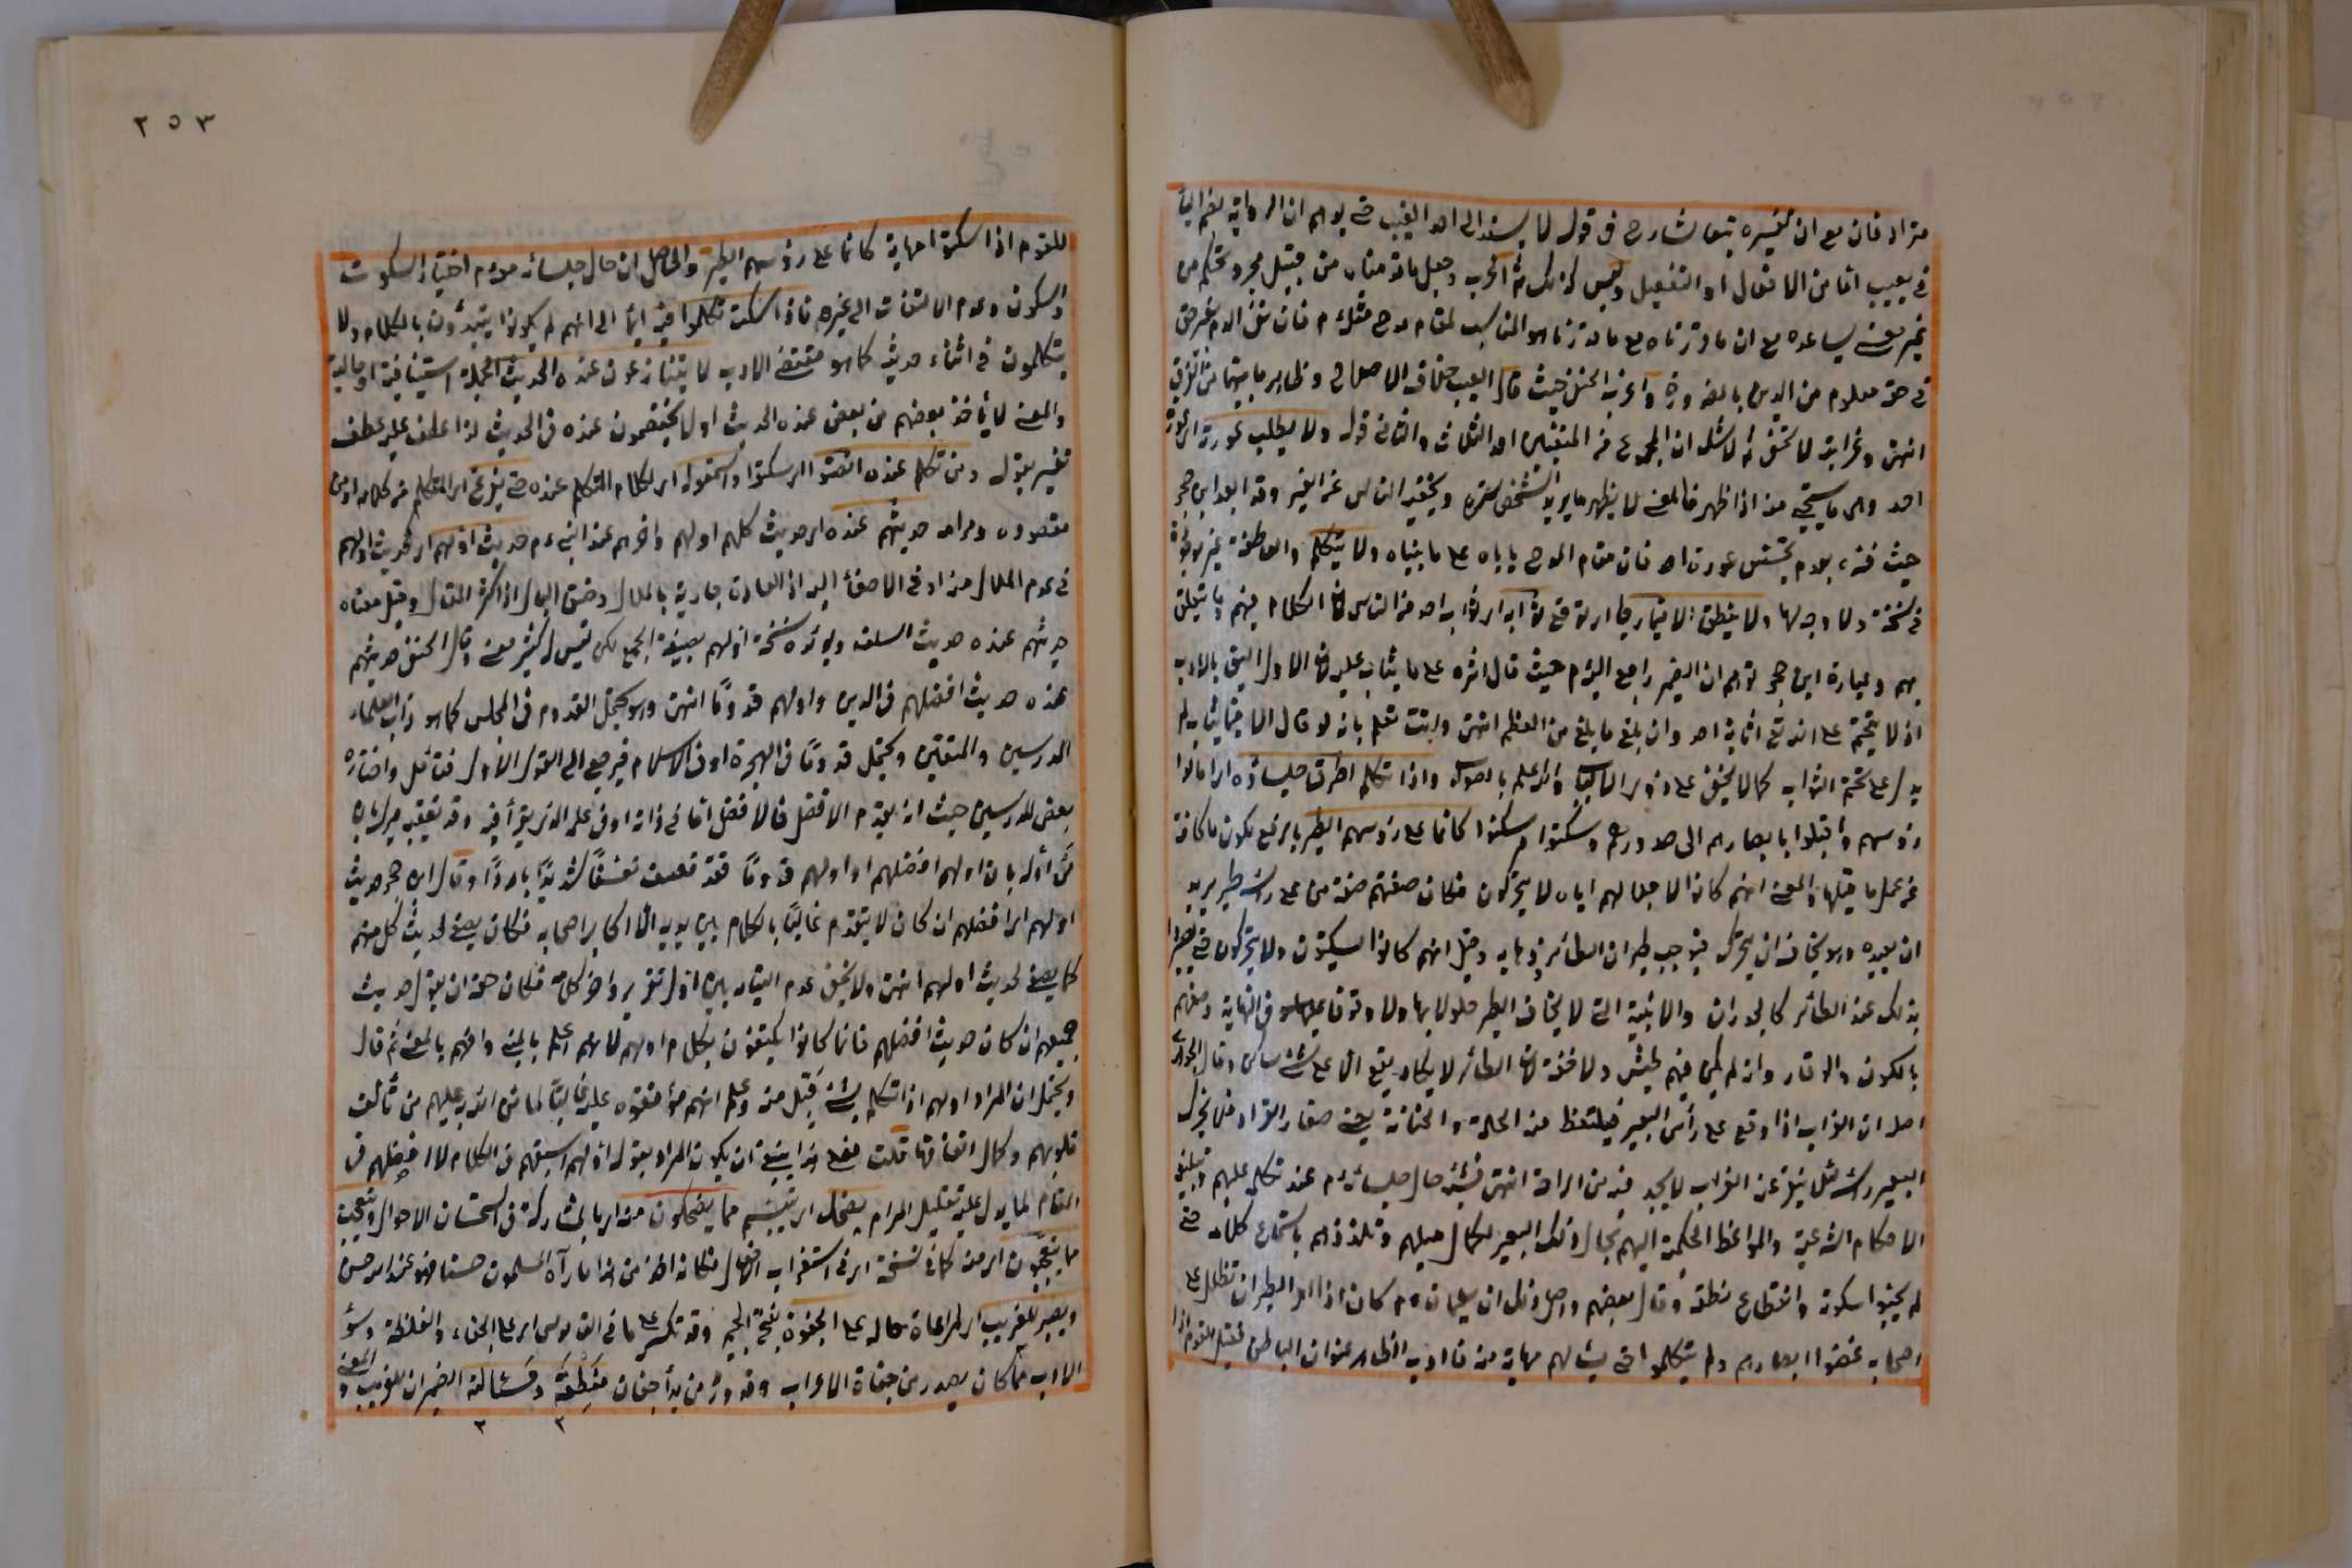 مترادفان مع ان تفسيره تبعا لشارح في قوله لا يسند الى احد العيب حتى يوهم ان الرواية بضم الياء
في يعيب اما من الافعال او التفعيل وليس كذلك وجعل ما قدمناه من قبيل مجرد تحكم من
غير معنى يساعده مع ان ما قررناه مع ما قدرناه هو المناسب لمقام مدحه م فان نفي الذم بغير حق
في حق معلوم من الدين بالضرورة واغرب الحنفي حيث قال العيب خلاف الاصلاح وظاهر ما بينهما من الفرق
انتهى وغرابته لا تخفى ثم لا شك ان المجموع من المنفيين احد الثلاث والثاني قوله ولا يطلب عورة اي عورة
احد وهي ما يستحيي منه اذا ظهر فالمعنى لا يظهر ما يريد الشخص ستره ويخفيه الناس عن الغير وقد ابعد ابن حجر
حيث فسره بعدم تجسس عورة احد فان مقام المدح ياباه على ما بيناه ولا يتكلم والعاطفة غير موجودة
في نسخة ولا وجه لها ولا ينطق الا فيما رجا اي توقع ثوابه اي ثواب احد من الناس فان الكلام فيهم وما يتعلق
بهم وعبارة ابن حجر توهم ان الضمير راجع اليه م حيث قال اثره على ما يثاب عليه لان الاول اليق بالادب
اذ لا يتحتم على الله تع اثابة احد وان بلغ ما بلغ من العظم انتهى وانت تعلم بانه لو قال الا فيما يثاب لم
يدل على تحتم الثواب كما لا يخفى على ذوي الالباب والله اعلم بالصواب واذا تكلم اطرق جلساؤه اي امالوا
رؤسهم واقبلوا بابصارهم الى صدورهم وسكتوا وسكنوا كانما على رؤسهم الطير بالرفع لكون ما كافة
عن عمل ما قبلها والمعنى انهم كانوا لاجلالهم اياه لا يتحركون فكان صفتهم صفة من على راسه طير يريد
ان يصيده وهو يخاف ان يتحرك فيوجب طيران الطائر وذهابه وقيل انهم كانوا يسكتون ولا يتحركون حتى يصيروا
بذلك عند الطائر كالجدران والابنية التي لا يخاف الطير حلولا بها ولا وقوفا عليها وفي النهاية وصفهم
بالسكون والوقار وانه لم يكن فيهم طيش ولا خفة لان الطائر لا يكاد يقع الا على شئ ساكن وقال الجوهري
اصله ان الغراب اذا وقع على رأس البعير فيلتقط منه الحلمة والحمنانة يعني صغار القراد فلا يحرك
البعير رأسه لئلا ينفر عنه الغراب لما يجد فيه من الراحة انتهى فشبه حال جلسائه م عند تكلمه عليهم وتبليغ
الاحكام الشرعية والمواعظ الحكمية اليهم بحال ذلك البعير لكمال ميلهم وتلذذهم باستماع كلامه حتى
لم يحبوا سكوته وانقطاع نطقه وقال بعضهم واصل ذلك ان سليمان م كان اذا امر الطير ان تظلل على
اصحابه غضوا ابصارهم ولم يتكلموا حتى يسألهم مهابة منه فادب الظاهر عنوان الباطن فقيل للقوم اذا
٢٥٣
للقوم اذا سكتوا مهابة كانما على رؤسهم الطير والحاصل ان حال جلسائه عنده م اختيار السكوت
والسكون وعدم الالتفات الى غيره فاذا سكت تكلموا فيه ايماء الى انهم لم يكونوا يبتدؤن بالكلام ولا
يتكلمون في اثناء حديثه كما هو مقتضى الادب لا يتنازعون عنده الحديث الجملة استينافية او حالية
والمعنى لا يأخذ بعضهم من بعض عنده الحديث او لا يختصمون عنده في الحديث لذا عطف عليه عطف
تفسير بقوله ومن تكلم عنده انصتوا اي سكتوا واستمعوا له اي لكلام المتكلم عنده حتى يفرغ اي المتكلم من كلامه او من
مقصوده ومرامه حديثهم عنده اي حديث كلهم اولهم واخرهم عند النبي م حديث اولهم اي كحديث اولهم
في عدم الملال منه او في الاصغاء اليه اذ العادة جارية بالملال وضيق البال اذا كثر المقال وقيل معناه
حديثهم عنده حديث السلف ويؤيده نسخة اولهم بصيغة الجمع لكن ليس له كثير معنى وقال الحنفي حديثهم
عنده حديث افضلهم في الدين واولهم قدوما انتهى وهو يحتمل القدوم في المجلس كما هو دأب العلماء
المدرسين والمفتين ويحتمل قدوما في الهجرة او في الاسلام فيرجع الى القول الاول فتأمل واختاره
بعض المدرسين حيث انه يقدم الافضل فالافضل اما في ذاته او في علم الذي يقرأ فيه وقد تعقبه ميرك بان
من أوله بان اولهم افضلهم او اولهم قدوما فقد تعسف تعسفا شديدا باردا وقال ابن حجر حديث
اولهم اي افضلهم اذ كان لا يتقدم غالبا بالكلام بين يديه الا اكابر اصحابه فكان يصغي لحديث كل منهم
كما يصغي لحديث اولهم انتهى ولا يخفى عدم التيام بين اول تقريره واخر كلامه فكان حقه ان يقول حديث
جميعهم ان كان حديث افضلهم فانما كانوا يكتفون بكلام اولهم لانه اعلم بالمبنى وافهم بالمعنى ثم قال
ويحتمل ان المراد اولهم اذا تكلم بشئ قبل منه وعلم انهم موافقوه عليه غالبا لما من الله به عليهم من تألف
قلوبهم وكمال اتفاقها قلت فعلى هذا ينبغي ان يكون المراد بقوله اولهم اسبقهم في الكلام لا افضلهم في
المقام لما يدل عليه تعليل المرام يضحك اي يتبسم مما يضحكون منه اي بالمشاركة في استحسان الاحوال ويتعجب
مما يتعجبون اي منه كما في نسخة اي في استغراب الافعال فكانه اخذ من هذا ما رآه المسلمون حسنا فهو عند الله حسن
ويصبر للغريب اي لمراعاة حاله على الجفوة بفتح الجيم وقد تكسر على ما في القاموس اي على الجفاء والغلظة وسوء
الادب مما كان يصدر من جفاة الاعراب وقد ورد من بدأ جفا في منطقه ومسألته الضميران للغريب والمعنى